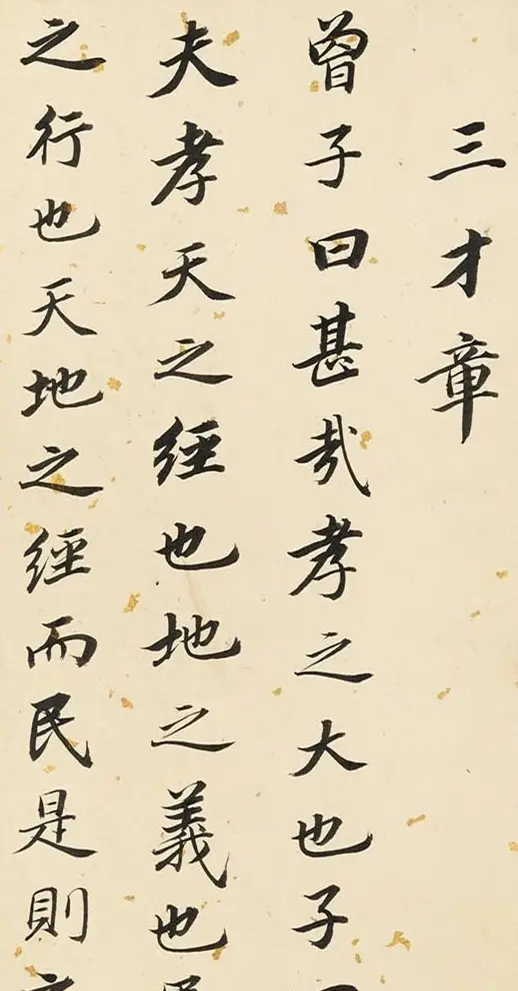 三才章
曾子曰甚哉孝之大也子
夫孝天之經也地之義也
之行也天地之經而民是則